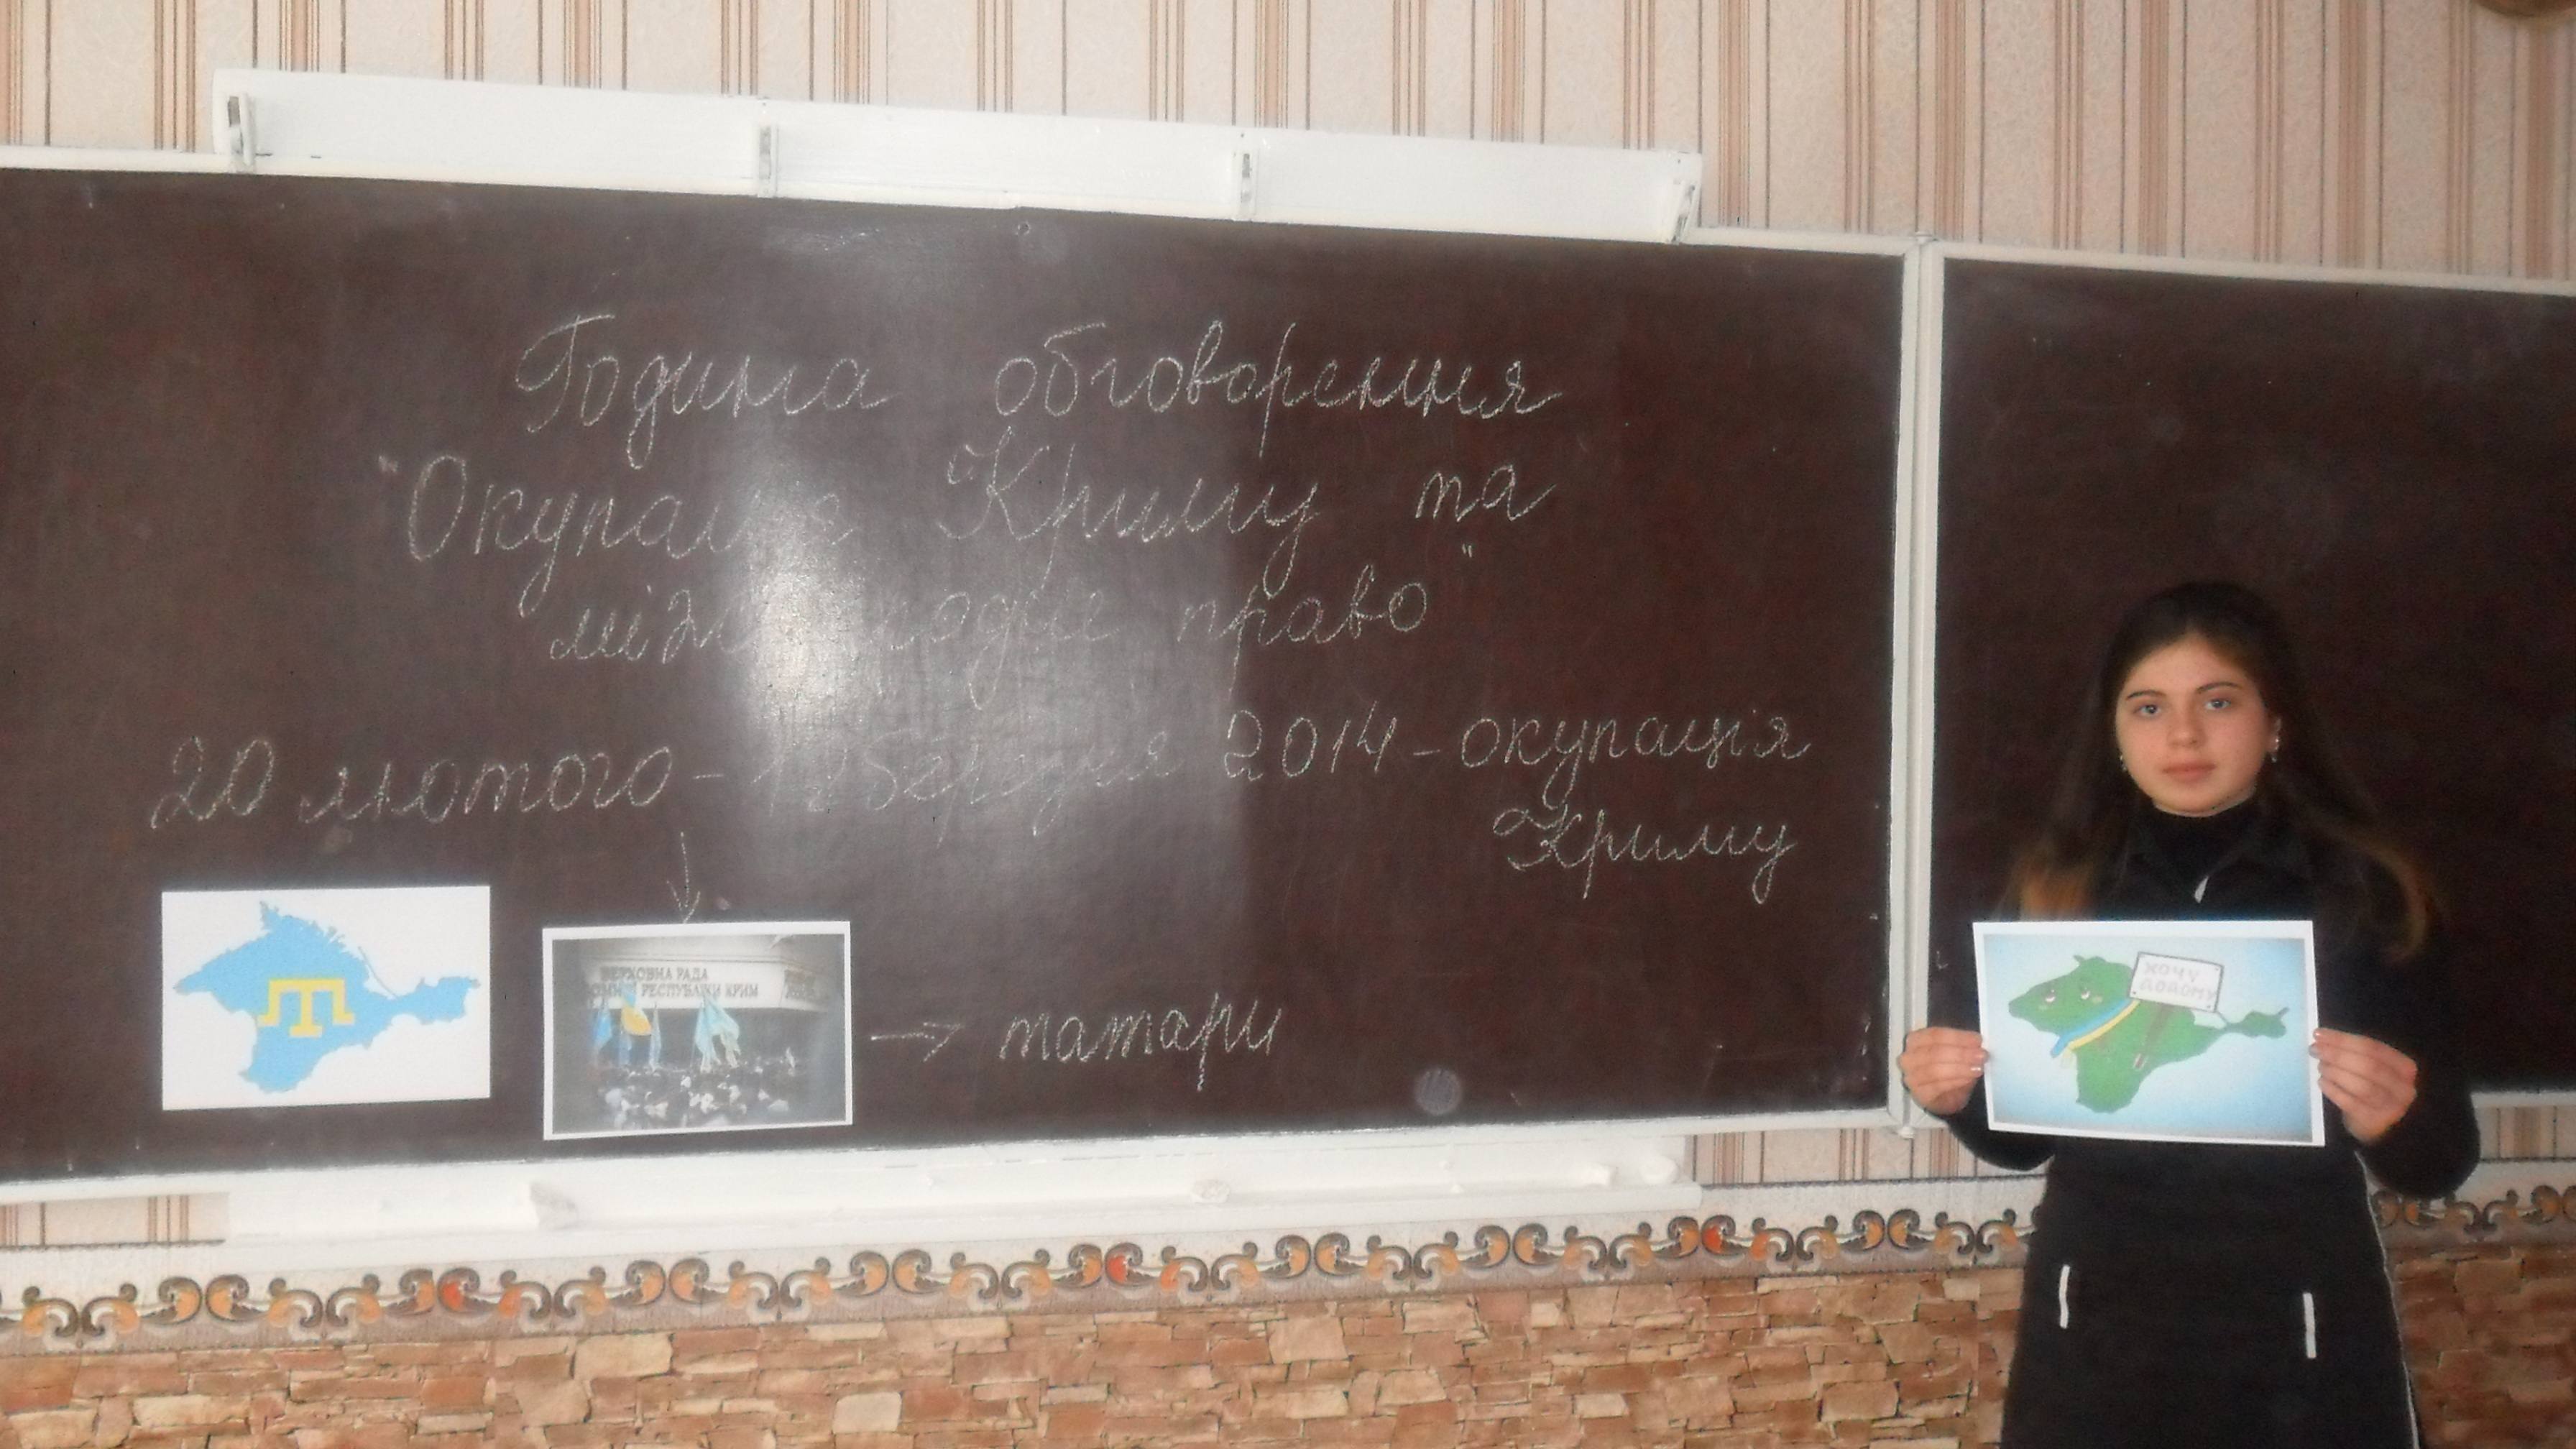 Година обговорення
"Окупація Криму та
міжнародне право"
20 лютого - березня 2014 - окупація
Криму
ВЕРХОВНА РАДА
РЕСПУБЛІКИ КРИМ
→ татари
ХОЧУ
ДОДОМУ